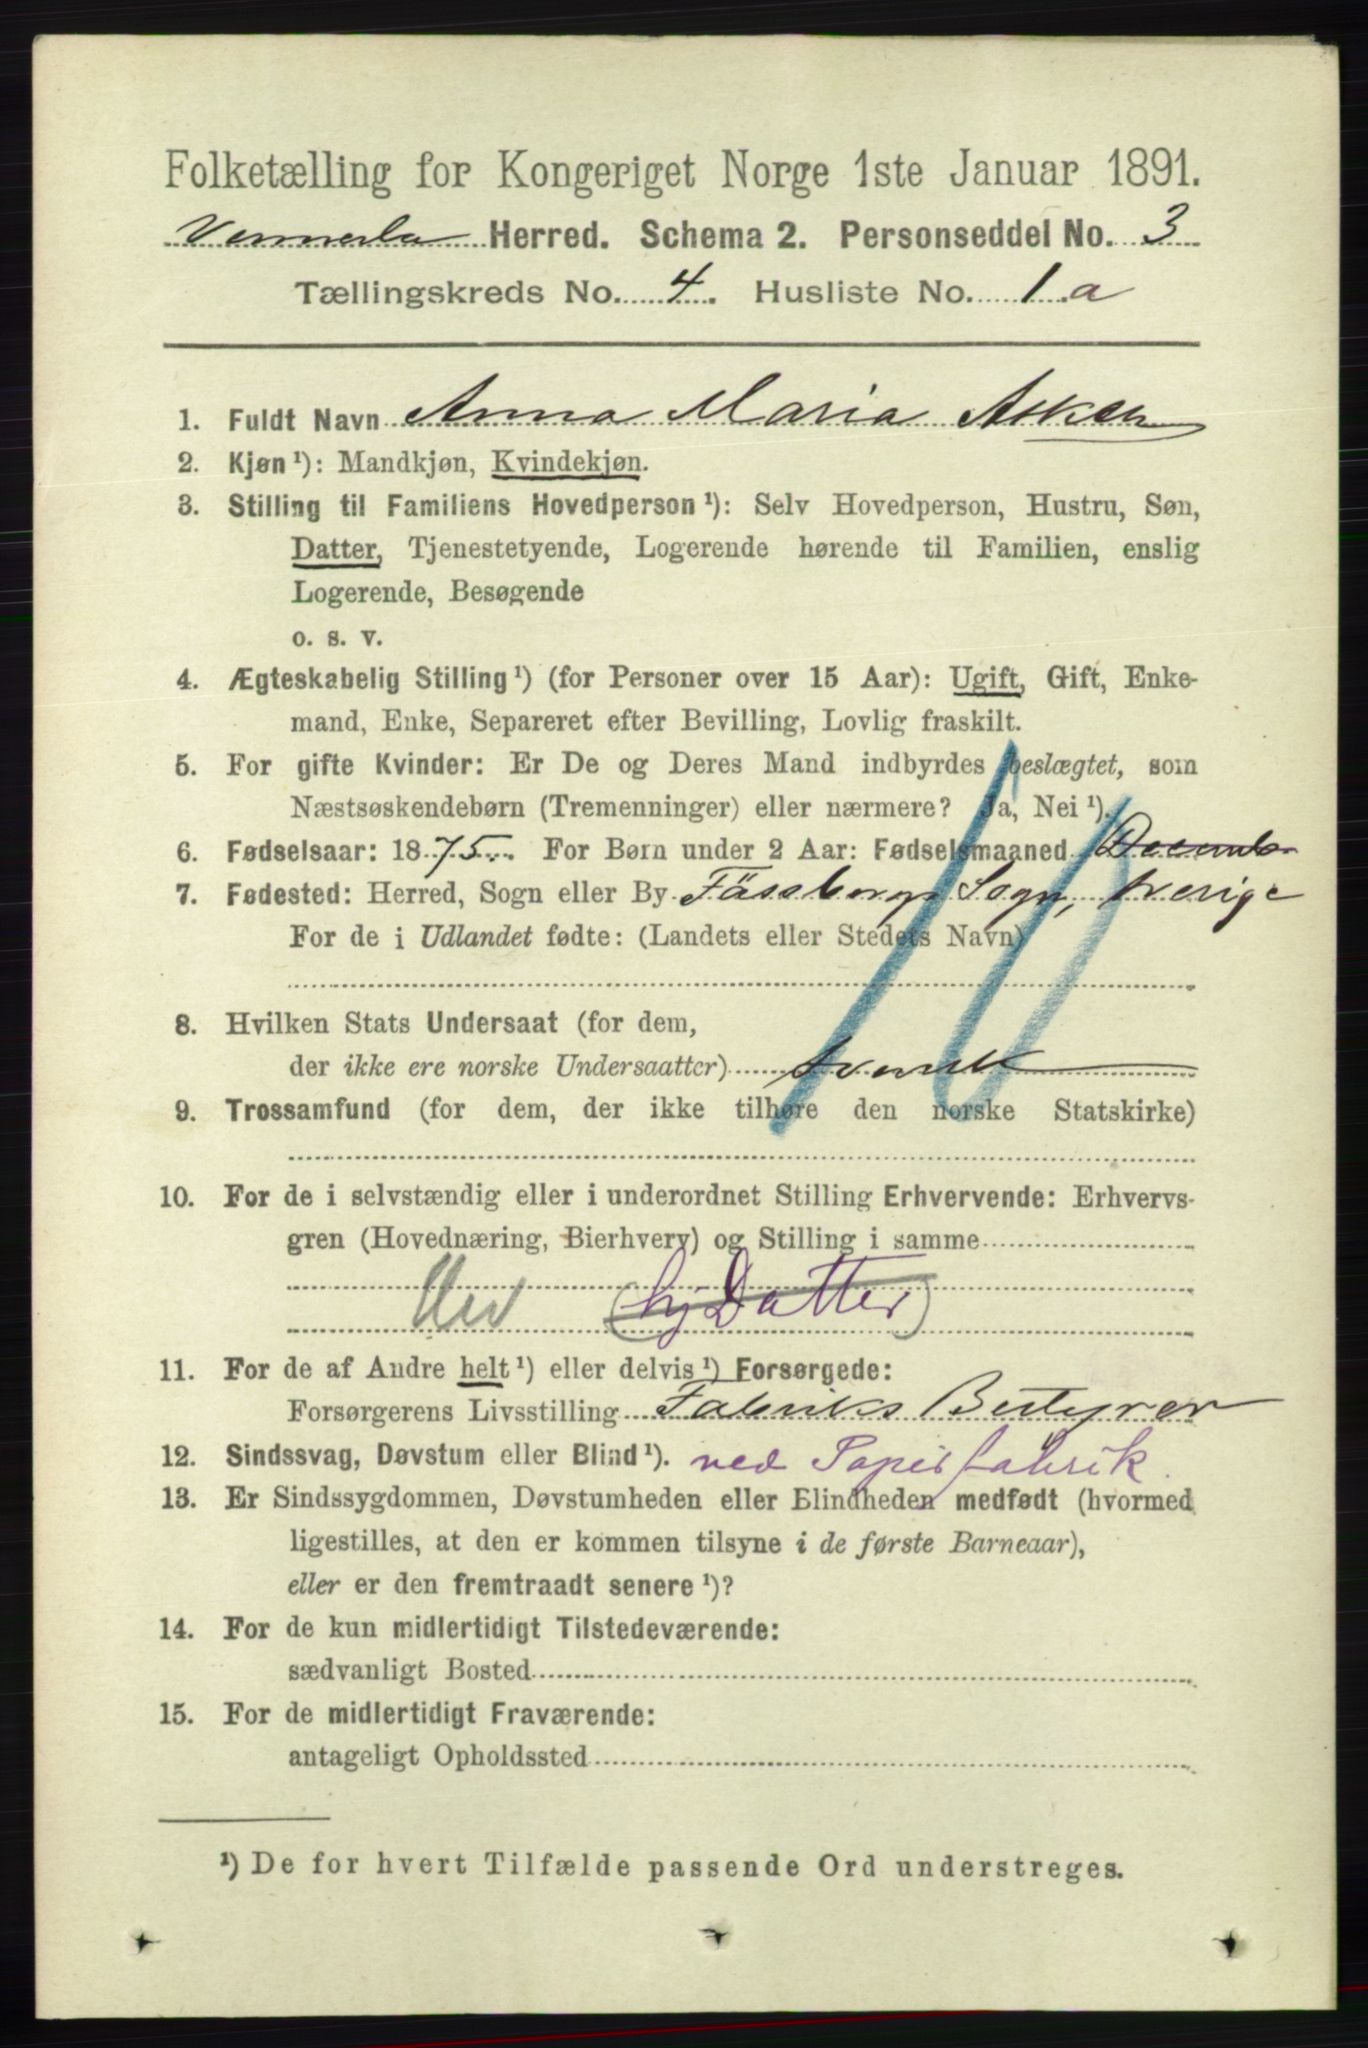 Folketælling for Kongeriget Norge 1ste Januar 1891.
Vennesla Herred. Schema 2. Personseddel No. 3
Tællingskreds No. 4. Husliste No. 1 a
1. Fuldt Navn Anna Maria Asker
2. Kjøn ¹): Mandkjøn, Kvindekjøn.
3. Stilling til Familiens Hovedperson ¹): Selv Hovedperson, Hustru, Søn,
Datter, Tjenestetyende, Logerende hørende til Familien, enslig
Logerende, Besøgende
o. s. v.
4. Ægteskabelig Stilling ¹) (for Personer over 15 Aar): Ugift, Gift, Enke-
mand, Enke, Separeret efter Bevilling, Lovlig fraskilt.
5. For gifte Kvinder: Er De og Deres Mand indbyrdes beslægtet, som
Næstsøskendebørn (Tremenninger) eller nærmere? Ja, Nei ¹).
6. Fødselsaar: 1875. For Børn under 2 Aar: Fødselsmaaned Decemb
7. Fødested: Herred, Sogn eller By Fässbergs Sogn, Sverige
For de i Udlandet fødte: (Landets eller Stedets Navn)
8. Hvilken Stats Undersaat (for dem,
der ikke ere norske Undersaatter) Svensk
9. Trossamfund (for dem, der ikke tilhøre den norske Statskirke)
10. For de i selvstændig eller i underordnet Stilling Erhvervende: Erhvervs-
gren (Hovednæring, Bierhverv) og Stilling i samme
(hj Datter)
11. For de af Andre helt ¹) eller delvis ¹) Forsørgede:
Forsørgerens Livsstilling Fabriks Bestyrer
12. Sindssvag, Døvstum eller Blind ¹). ved Papirfabrik.
13. Er Sindssygdommen, Døvstumheden eller Blindheden medfødt (hvormed
ligestilles, at den er kommen tilsyne i de første Barneaar),
eller er den fremtraadt senere ¹)?
14. For de kun midlertidigt Tilstedeværende:
sædvanligt Bosted
15. For de midlertidigt Fraværende:
antageligt Opholdssted
¹) De for hvert Tilfælde passende Ord understreges.